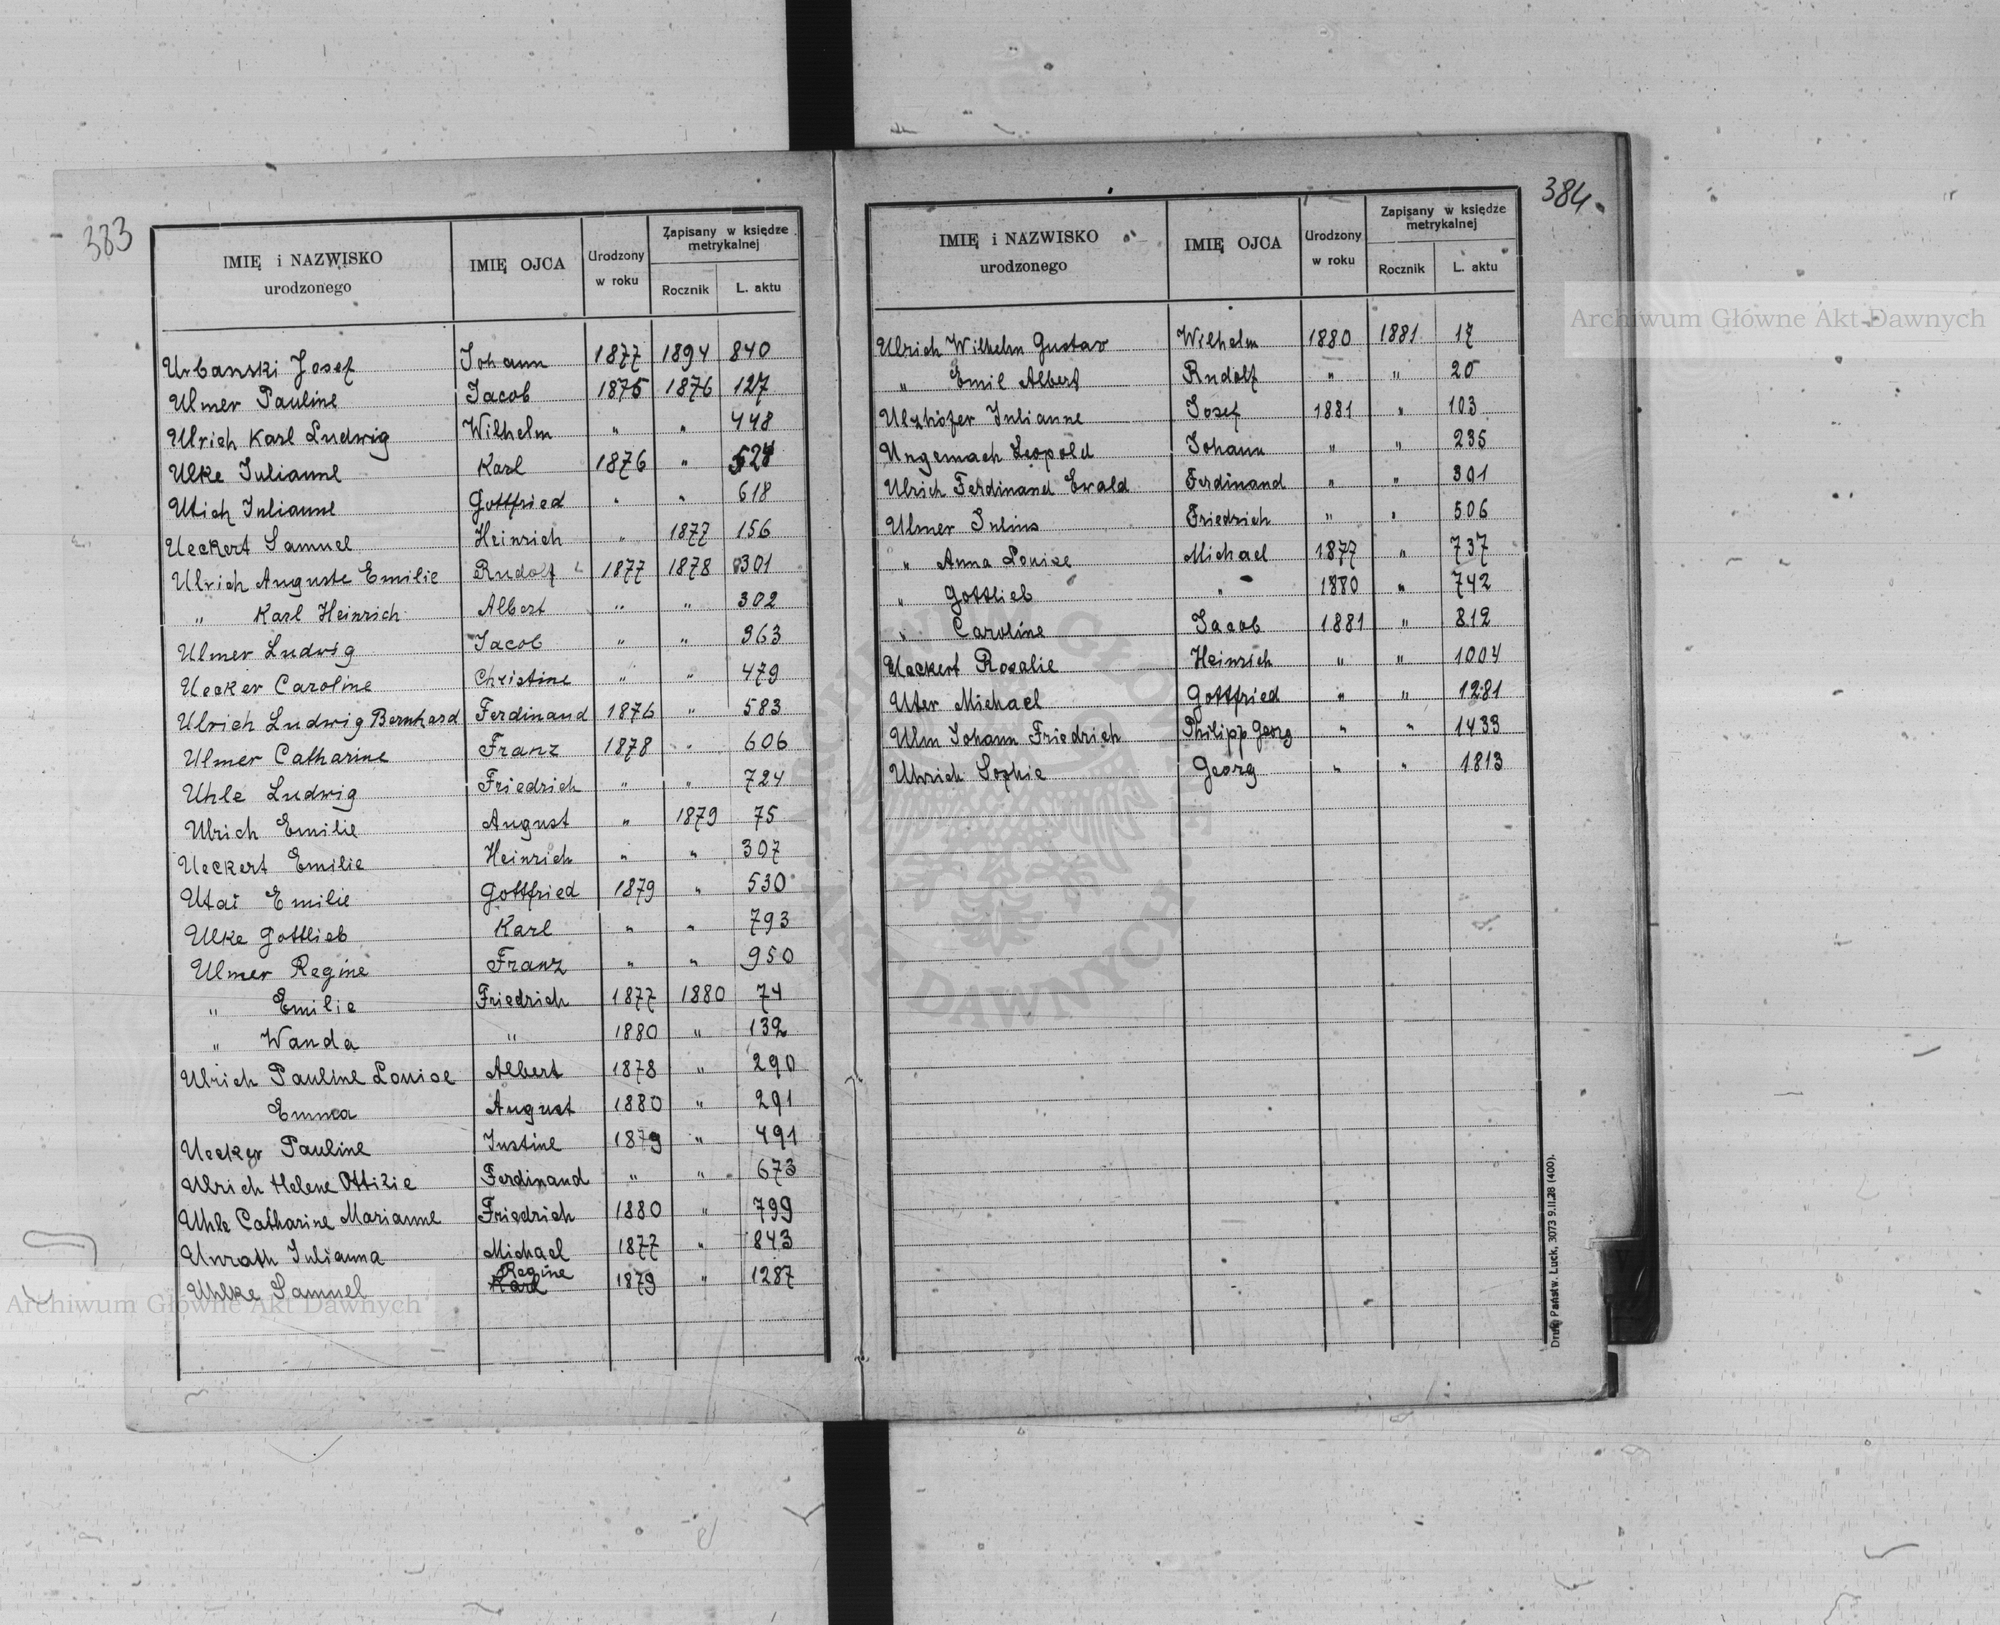 383
IMIĘ i NAZWISKO urodzonego | IMIĘ OJCA | Urodzony w roku | Zapisany w księdze metrykalnej
Rocznik | L. aktu
Urbanski Josef | Johann | 1877 | 1894 | 840
Ulmer Pauline | Jacob | 1875 | 1876 | 127
Ulrich Karl Ludwig | Wilhelm | " | " | 448
Ulke Julianne | Karl | 1876 | " | 524
Utich Julianne | Gottfried | " | " | 618
Ueckert Samuel | Heinrich | " | 1877 | 156
Ulrich Auguste Emilie | Rudolf | 1877 | 1878 | 301
" Karl Heinrich | Albert | " | " | 302
Ulmer Ludwig | Jacob | " | " | 363
Uecker Caroline | Christine | " | " | 479
Ulrich Ludwig Bernhard | Ferdinand | 1876 | " | 583
Ulmer Catharine | Franz | 1878 | " | 606
Uhle Ludwig | Friedrich | " | " | 724
Ulrich Emilie | August | " | 1879 | 75
Ueckert Emilie | Heinrich | " | " | 307
Utai Emilie | Gottfried | 1879 | " | 530
Ulke Gottlieb | Karl | " | " | 793
Ulmer Regine | Franz | " | " | 950
" Emilie | Friedrich | 1877 | 1880 | 74
" Wanda | " | 1880 | " | 132
Ulrich Pauline Louise | Albert | 1878 | " | 290
Emma | August | 1880 | " | 291
Uecker Pauline | Justine | 1879 | " | 491
Ulrich Helene Ottilie | Ferdinand | " | " | 673
Uhle Catharine Marianne | Friedrich | 1880 | " | 799
Unrath Julianna | Michael | 1877 | " | 843
Uhlke Samuel | Karl Regine | 1879 | " | 1287
384.
IMIĘ i NAZWISKO urodzonego | IMIĘ OJCA | Urodzony w roku | Zapisany w księdze metrykalnej
Rocznik | L. aktu
Ulrich Wilhelm Gustav | Wilhelm | 1880 | 1881 | 17
" Emil Albert | Rudolf | " | " | 20
Ulzhöfer Julianne | Josef | 1881 | " | 103
Ungemach Leopold | Johann | " | " | 235
Ulrich Ferdinand Ewald | Ferdinand | " | " | 301
Ulmer Julius | Friedrich | " | " | 506
" Anna Louise | Michael | 1877 | " | 737
" Gottlieb | " | 1880 | " | 742
" Caroline | Jacob | 1881 | " | 812
Ueckert Rosalie | Heinrich | " | " | 1004
Uter Michael | Gottfried | " | " | 1281
Ulm Johann Friedrich | Philipp Georg | " | " | 1433
Uhrich Sophie | Georg | " | " | 1813
Druk. Państw. Łuck, 3073 9.II.28 (400).
Archiwum Główne Akt Dawnych
Archiwum Główne Akt Dawnych
ARCHIWUM GŁÓWNE AKT DAWNYCH